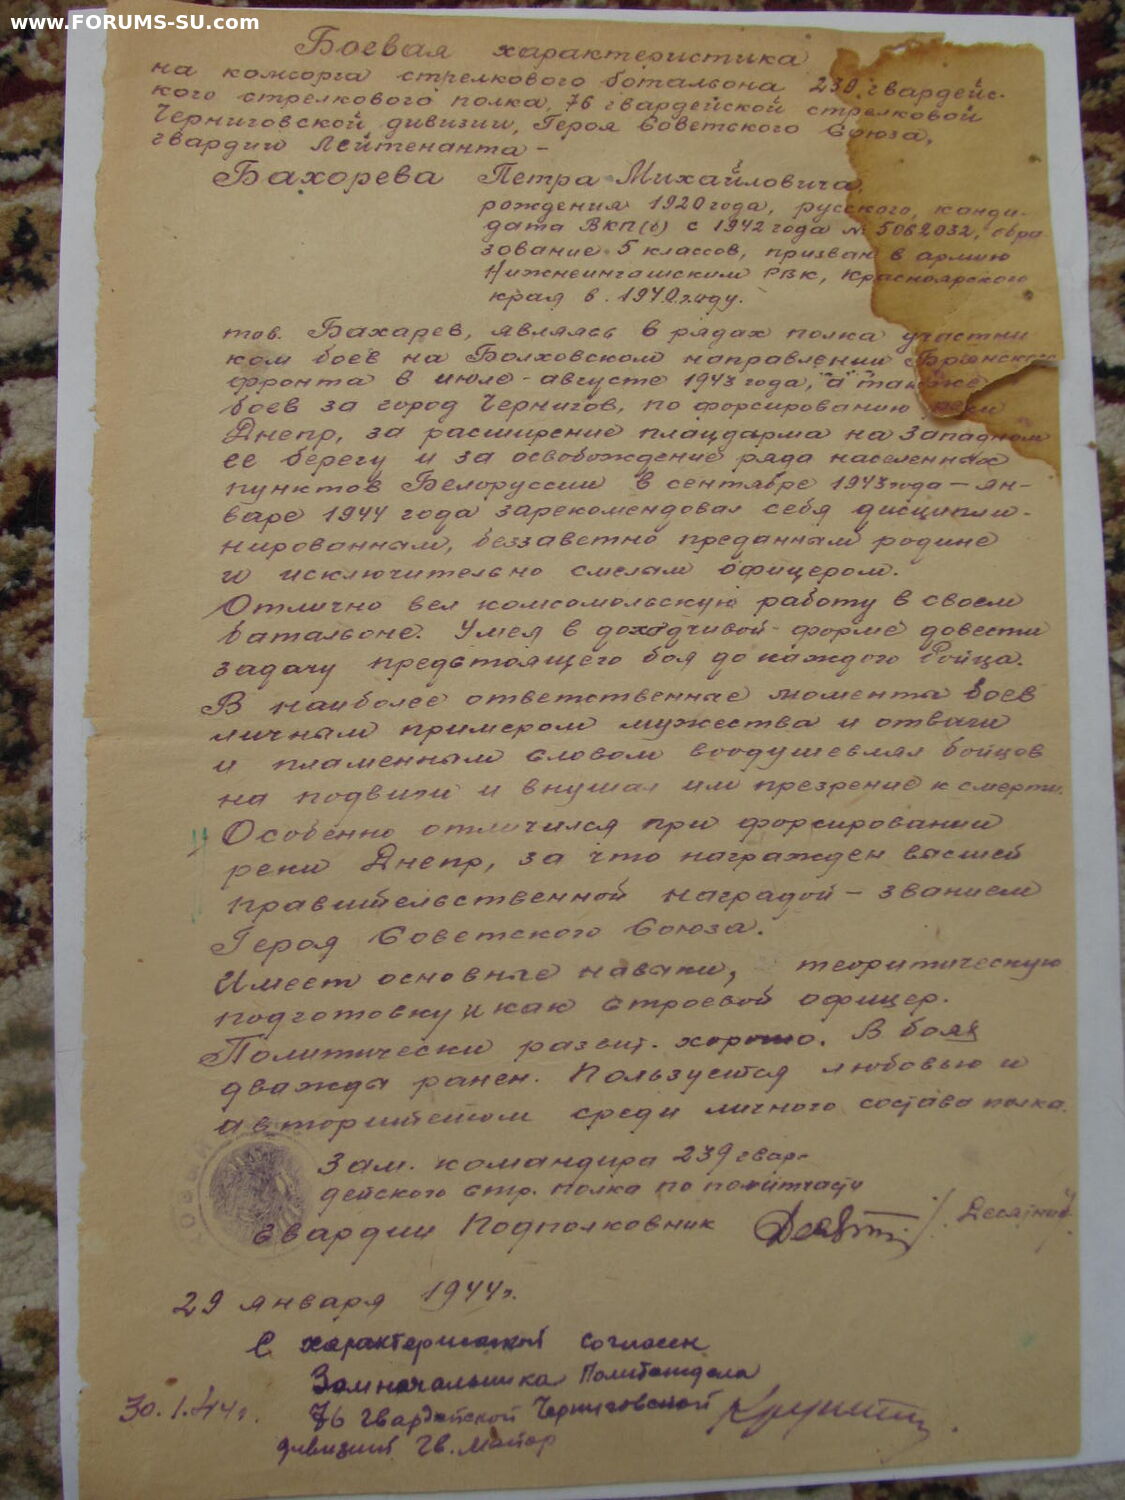 www.FORUMS-SU.com
Боевая характеристика
на комсорга стрелкового ботальона 239 гвардейс-
кого стрелкового полка, 76 гвардейской стрелковой
Черниговской дивизии, Героя Советского Союза,
гвардии Лейтенанта -
Бахорева Петра Михайловича,
рождения 1920 года, русского, канди-
дата ВКП(б) с 1942 года № 5062032, обра-
зование 5 классов, призван в армию
Нижнеингашским РВК, Красноярского
края в 1940 году.
тов. Бахарев, являясь в рядах полка участни
ком боев на Болховском направлении Брянского
фронта в июле - августе 1943 года, а также
боев за город Чернигов, по форсированию реки
Днепр, за расширение плацдарма на западном
ее берегу и за освобождение ряда населенных
пунктов Белоруссии в сентябре 1943 года - ян-
варе 1944 года зарекомендовал себя дисципли-
нированным, беззаветно преданным родине
и исключительно смелым офицером.
Отлично вел комсомольскую работу в своем
батальоне. Умея в доходчивой форме довести
задачу предстоящего боя до каждого бойца.
В наиболее ответственные момента боев
личным примером мужества и отваги
и пламенным словом воодушевлял бойцов
на подвиги и внушал им презрение к смерти.
Особенно отличился при форсировании
реки Днепр, за что награжден высшей
правительственной наградой - званием
Героя Советского Союза.
Имеет основные наваки, теоритическую
подготовку и как строевой офицер.
Политически развит. хорошо. В боях
дважды ранен. Пользуется любовью и
авторитетом среди личного состава полка.
Зам. командира 239 гвар-
дейского стр. полка по политчасти
гвардии Подполковник
29 января 1944 г.
С характеристикой согласен
Зам начальника Политотдела
30.1.44 г. 76 Гвардейской Черниговской
дивизии Гв. майор